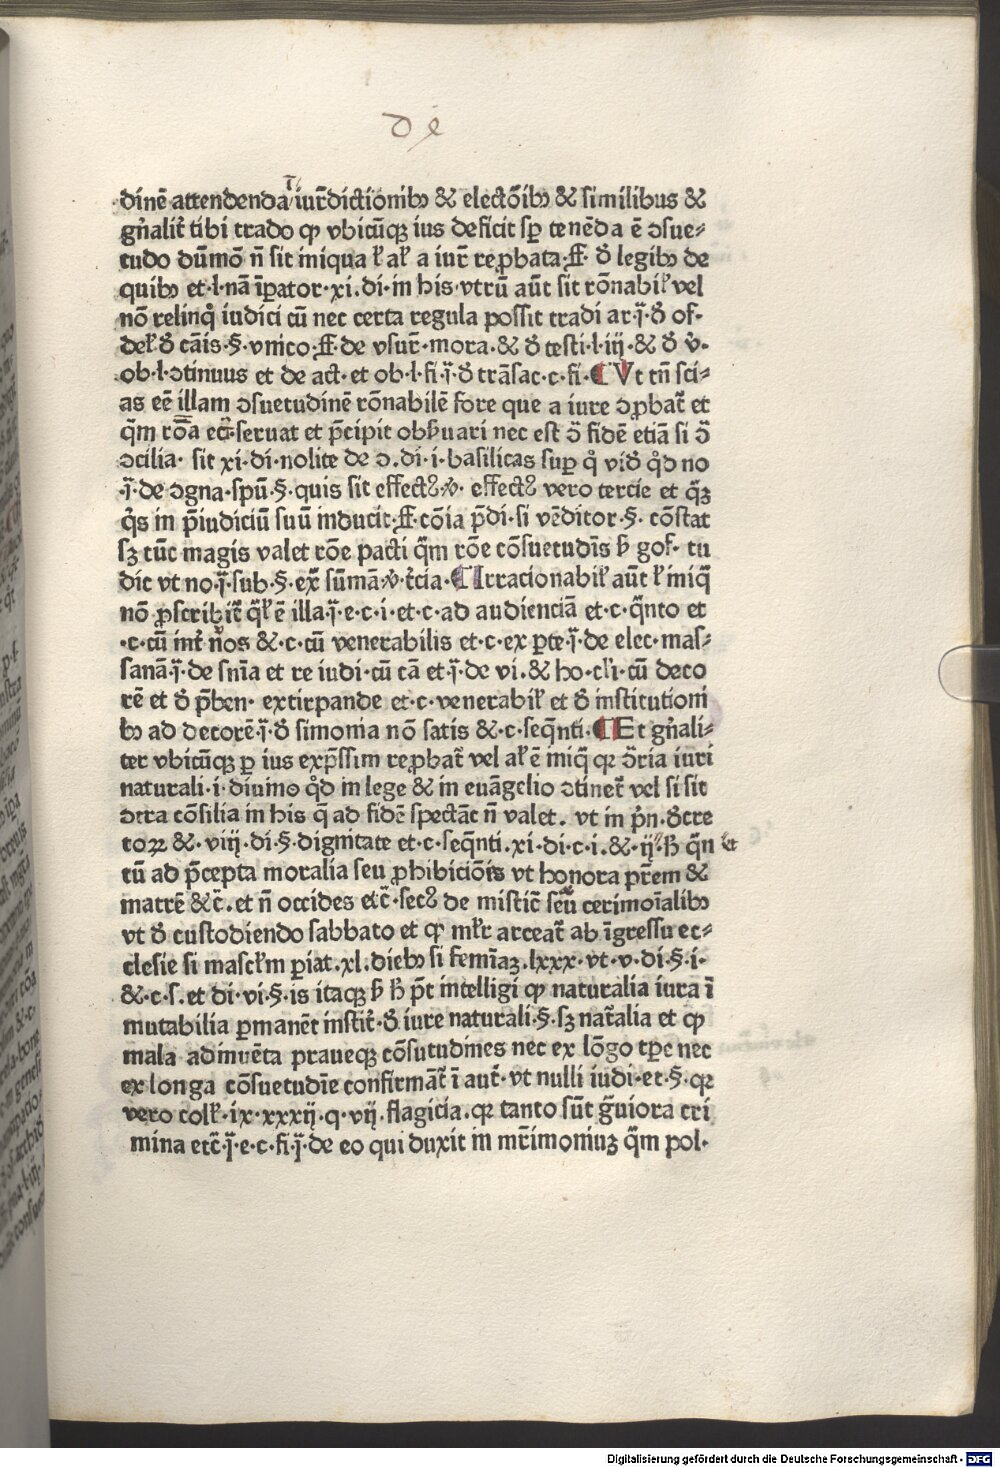 de
dinē attendenda iur̄dictionibꝫ & electōibꝫ & similibus &
gn̄alit̄ tibi trado ꝙ vbicūqꝫ ius deficit sꝑ tenēda ē ↄsue⸗
tudo dūmō n̄ sit iniqua ł ał a iur̄ reꝓbata.ff. đ legibꝫ de
quibꝫ et·l·nā īꝑator·xi.di·in his·vtrū aūt sit rōnabił vel
nō relinqͥ iudici cū nec certa regula possit tradi ar·j̄·đ of·
deł·đ cāis·§·vnico·ff·de vsur̄·mora·&·đ testi·l·iij·&·đ v̄·
ob·l·ↄtinuus et de act·et ob·l·fi·j̄·đ trāsac·c·fi·¶Vt tn̄ sci⸗
as eē illam ↄsuetudinē rōnabilē fore que a iure ↄꝓbat̄ et
q̄m rōa ecc̄·seruat et p̄cipit obẜuari nec est ↄ̄ fidē etiā si ↄ̄
ↄcilia· sit xi·di·nolite de ↄ.di·i·basilicas suꝑ qͥ viđ qͦd no
·j̄·de ↄgna·spū·§·quis sit effectꝰ·v̄· effectꝰ vero tercie et q̄ꝫ
qͥs in p̄iudiciū suū inducit·ff·cōia p̄di·si vēditor·§· cōstat
sꝫ tūc magis valet rōe pacti q̄m rōe cōsuetudīs ẜ gof· tu
dic vt no·j̄·sub·§·ex̄ sūmā·v̄·t̄cia·¶Irracionabił aūt ł iniq̄
nō ꝓscribit̄ q̄ł ē illa·j̄·e·c·i·et·c·ad audienciā et·c·q̄nto et
·c·cū int̄ nos &·c·cū venerabilis et·c·ex ꝑte·j̄·de elec·mas⸗
sanā·j̄·de sn̄ia et re iudi·cū cā et·j̄·de vi·&·ho·cl'i·cū deco
rē et đ p̄ben· extirpande et·c·venerabił et đ institutioni
bꝫ ad decorē·j̄·đ simonia nō satis &·c·seq̄nti·¶Et gn̄ali⸗
ter vbicūqꝫ ꝑ ius exp̄ssim reꝓbat̄ vel ał ē iniq̄ qꝛ ↄ̄ria iuri
naturali·i·diuino qͦd in lege & in euāgelio ↄtinet̄ vel si sit
ↄtra cōsilia in his q̄ ad fidē spectāt n̄ valet. vt in p̄n·đcre
toꝝ &·viij·di·§·dignitate et·c·seq̄nti.xi·di·c·i.&·ij·ħ q̄n
et
tū ad p̄cepta moralia seu ꝓhibiciōis vt honora pr̄em &
matrē &c̄.et n̄ occides etc̄·secꝰ de mistic̄ seu cerimoīalibꝫ
vt đ custodiendo sabbato et ꝙ mł̄r arceat̄ ab īgressu ec⸗
clesie si mascłm ꝑiat.xl.diebꝫ si femīaꝫ.lxxx·vt·v·di·§·i·
&·c·s.et di·vi·§·is itaqꝫ ẜ ħ p̄t intelligi ꝙ naturalia iura ī
mutabilia ꝑmanēt instit̄·đ iure naturali·§·sꝫ nat̄alia et ꝙ
mala adinuēta praueqꝫ cōsutudines nec ex lōgo tꝑe nec
ex longa cōsuetudīe confirmāt̄ ī aut̄·vt nulli iudi·et·§·qꝛ
vero coll̄·ix·xxxij·q·vij.flagicia.qꝛ tanto sūt ḡuiora cri
mina etc̄·j̄·e·c·fi·j̄·de eo qui duxit in mr̄imoniuꝫ q̄m pol·
Digitalisierung gefördert durch die Deutsche Forschungsgemeinschaft - DFG